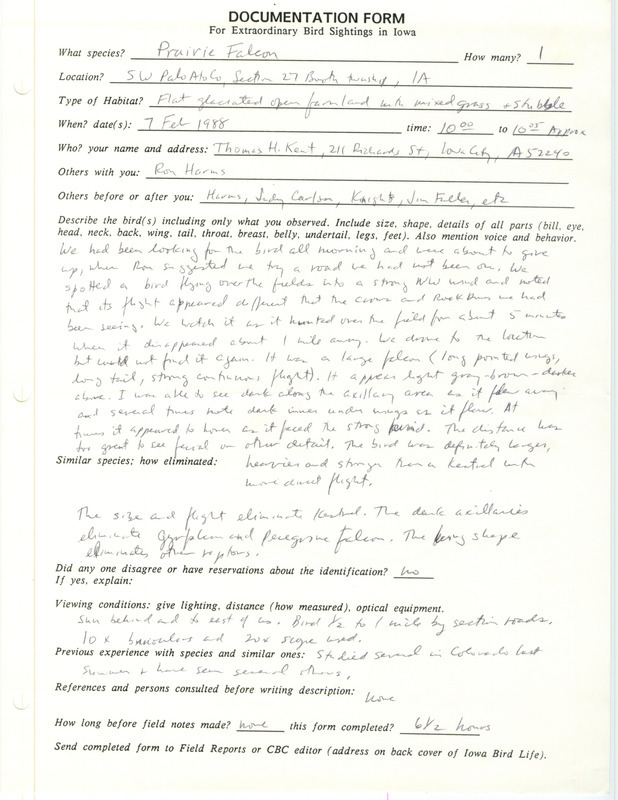 DOCUMENTATION FORM
For Extraordinary Bird Sightings in Iowa
What species? Prairie Falcon How many? 1
Location? SW Palo Alto Co, Section 27 Booth township, IA
Type of Habitat? Flat glaciated open farmland with mixed grass + stubble
When? date(s): 7 Feb 1988 time: 10:00 to 10:05 Approx
Who? your name and address: Thomas H. Kent, 211 Richards St, Iowa City, IA 52240
Others with you: Ron Harms
Others before or after you: Harms, Judy Carlson, Knights, Jim Fuller, etc
Describe the bird(s) including only what you observed. Include size, shape, details of all parts (bill, eye,
head, neck, back, wing, tail, throat, breast, belly, undertail, legs, feet). Also mention voice and behavior.
We had been looking for the bird all morning and were about to give
up, when Ron suggested we try a road we had not been on. We
spotted a bird flying over the fields into a strong NW wind and noted
that its flight appeared different that the crows and Rock Doves we had
been seeing. We watch it as it hunted over the field for about 5 minutes
when it disappeared about 1 mile away. We drove to the location
but could not find it again. It was a large falcon (long pointed wings,
long tail, strong continuous flight). It appears light gray-brown - darker
above. I was able to see dark along the axillary area as it flew away
and several times note dark inner under wings as it flew. At
times it appeared to hover as it faced the strong wind. The distance was
too great to see facial or other detail. The bird was definitely larger,
Similar species; how eliminated: heavier and stronger than a kestrel with
more direct flight.
The size and flight eliminate Kestrel. The dark axillaries
eliminate Gyrfalcon and Peregrine Falcon. The wing shape
eliminates other raptors.
Did any one disagree or have reservations about the identification? no
If yes, explain:
Viewing conditions: give lighting, distance (how measured), optical equipment.
Sun behind and to east of us. Bird 1/2 to 1 mile by section roads.
10 x binoculars and 20x scope used.
Previous experience with species and similar ones: Studied several in Colorado last
summer + have seen several others.
References and persons consulted before writing description:
none
How long before field notes made? none this form completed? 6 1/2 hours
Send completed form to Field Reports or CBC editor (address on back cover of Iowa Bird Life).